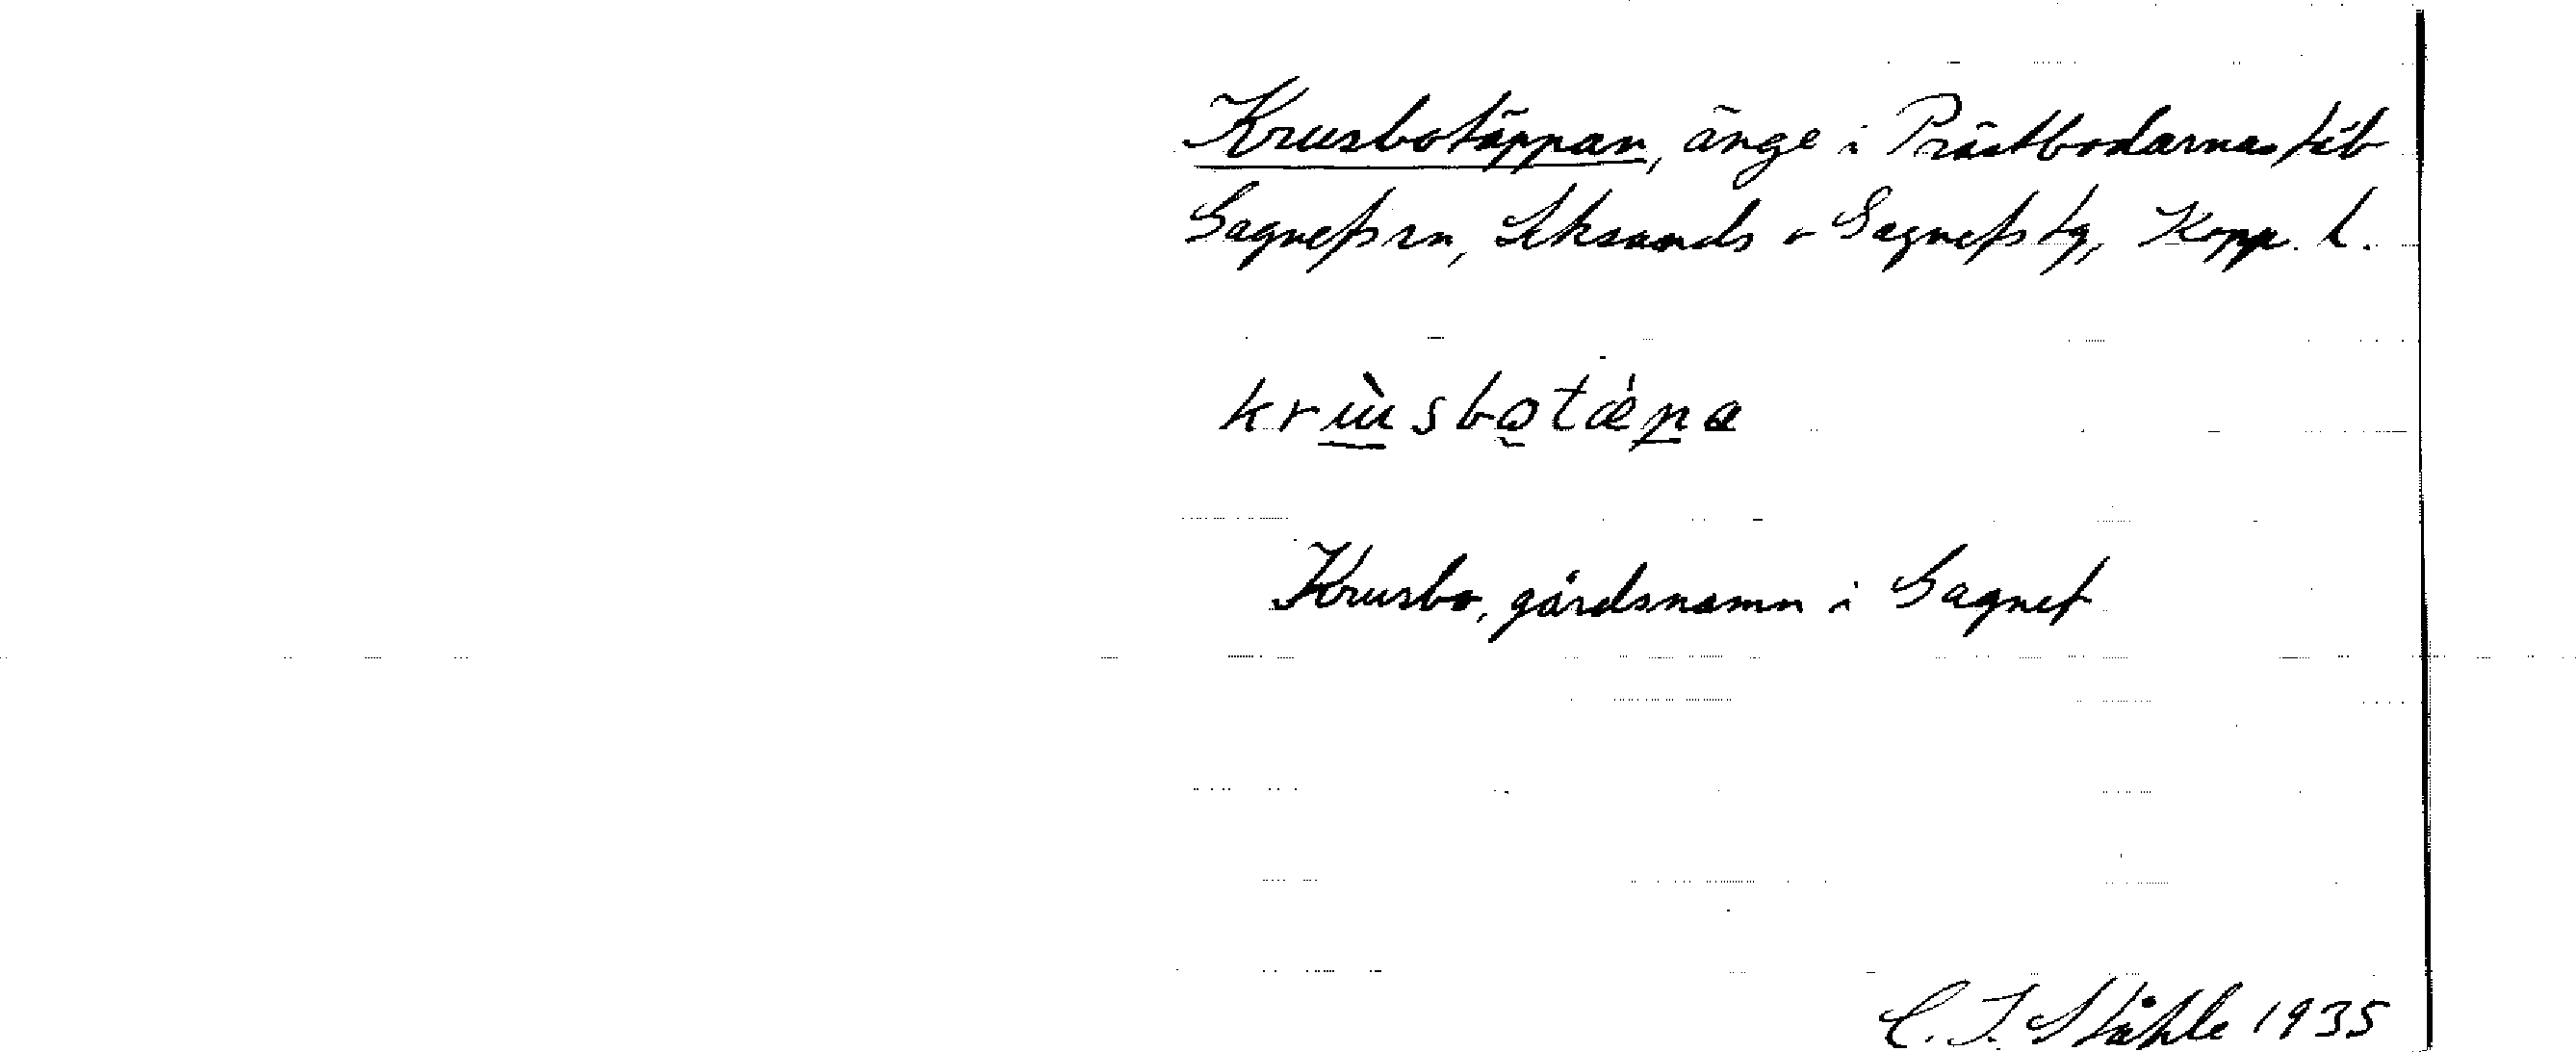 Krusbotäppan, änge i Prästbodarnas fäb
Gagnefs sn, Leksands o Gagnefs tg, Kopp. l.
krùsbotæ̀pa
Krusbo, gårdsnamn i Gagnef
C. I. Ståhle 1935